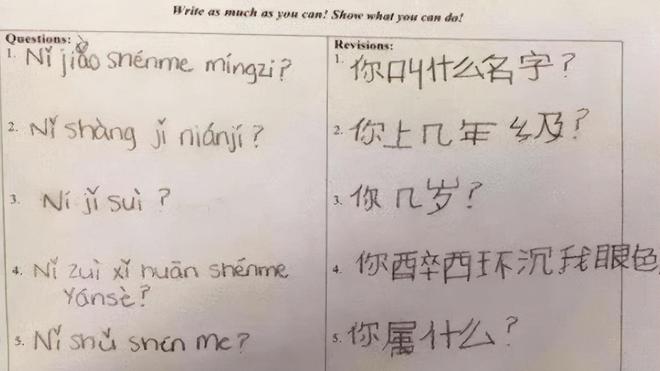 Write as much as you can! Show what you can do!
Questions:
1. Nǐ jiào shénme míngzi?
2. Nǐ shàng jǐ niánjí?
3. Ní jǐ suì?
4. Nǐ zuì xǐ huān shénme
Yánsè?
5. Nǐ shǔ shén me?
Revisions:
1. 你叫什么名字?
2. 你上几年级?
3. 你几岁?
4. 你酉卒西环沉我眼色
5. 你属什么?